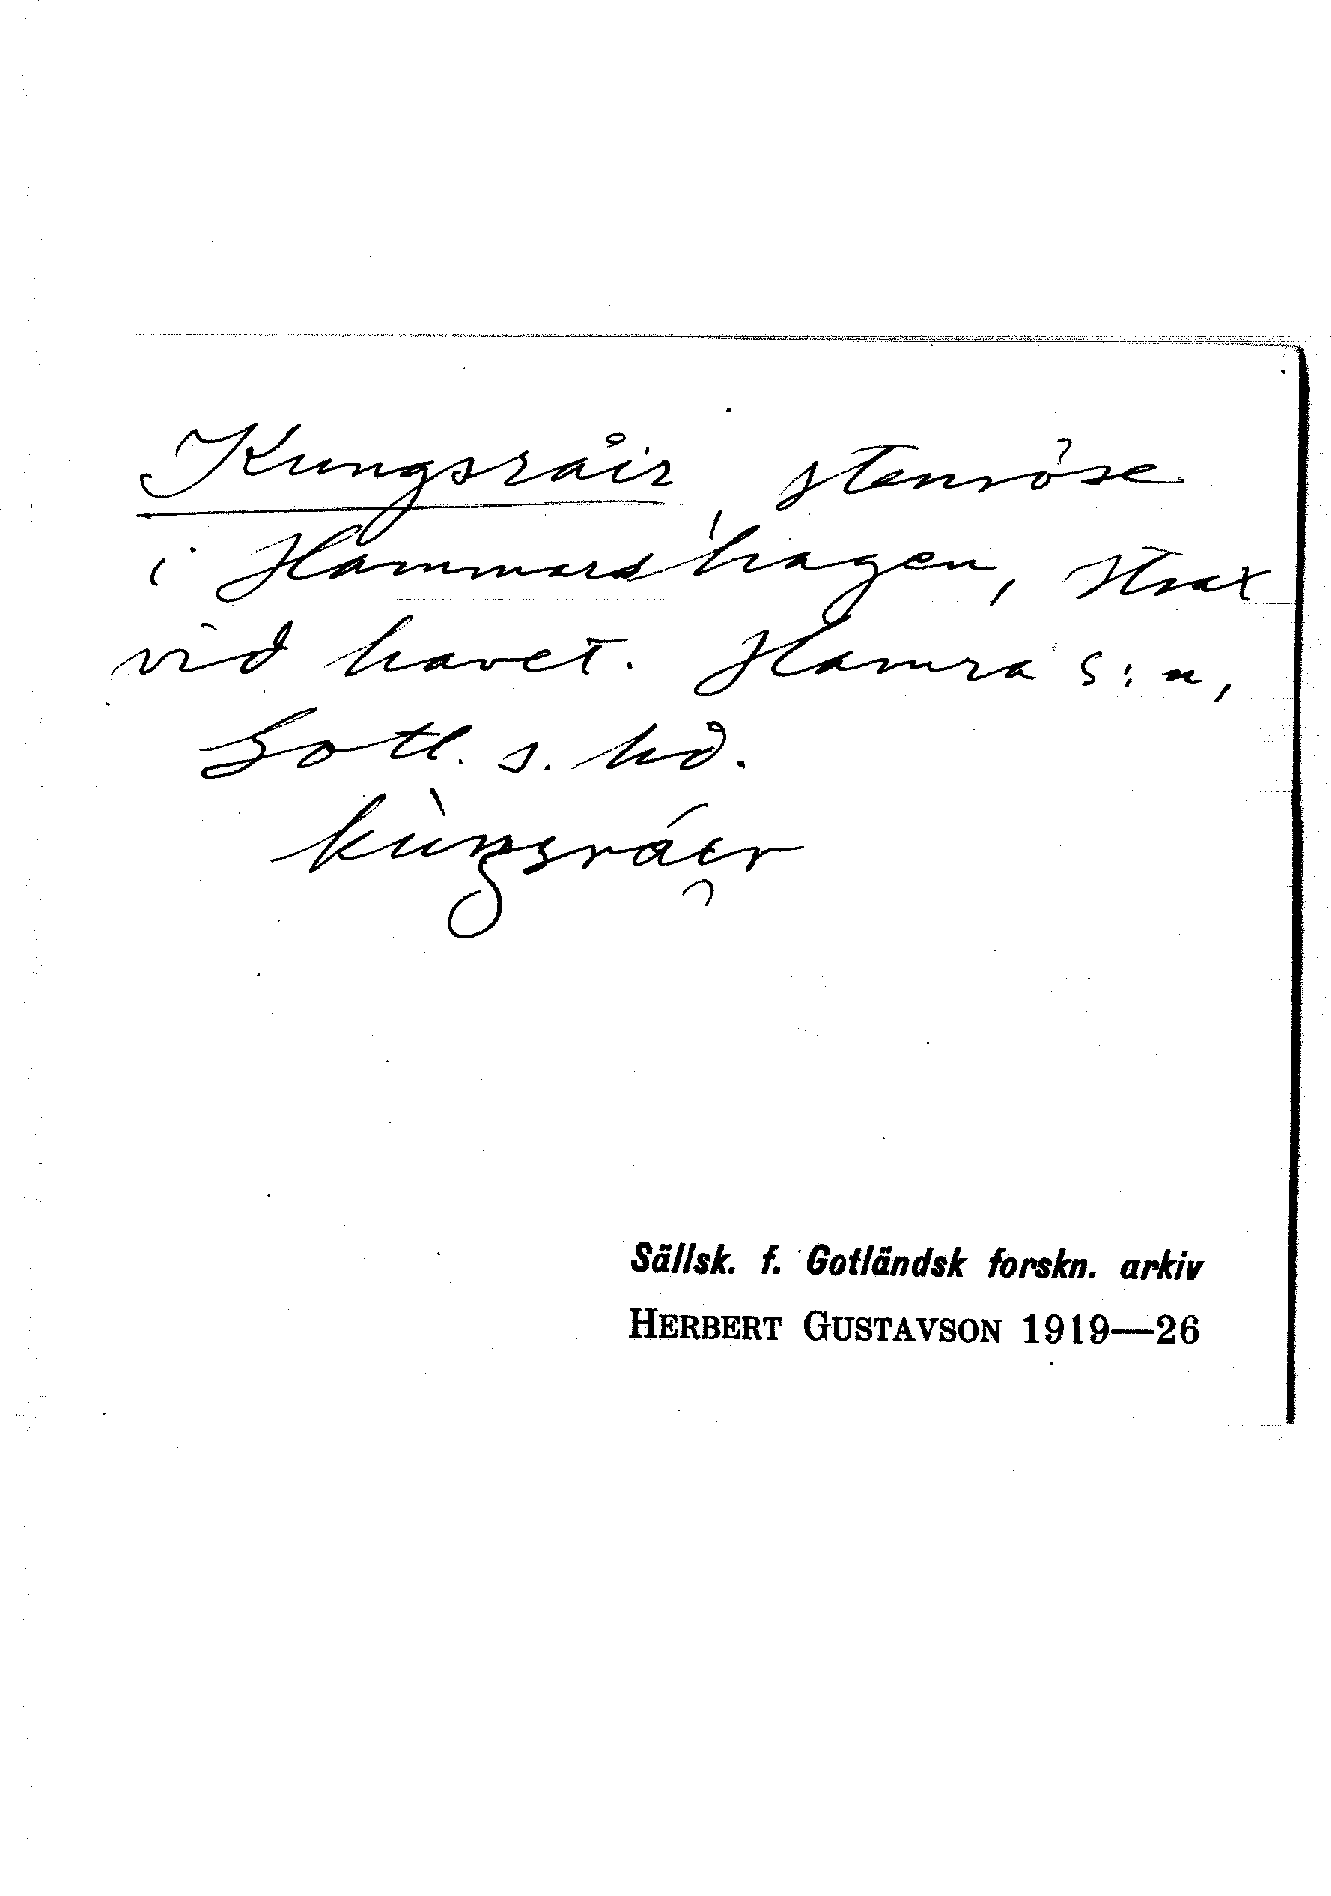 Kungsråir, stenröse
i Hammarshagen, strax
vid havet. Hamra s:n,
Gotl. s. hd.
kùŋsrái̯r
Sällsk. f. Gotländsk forskn. arkiv
HERBERT GUSTAVSON 1919—26